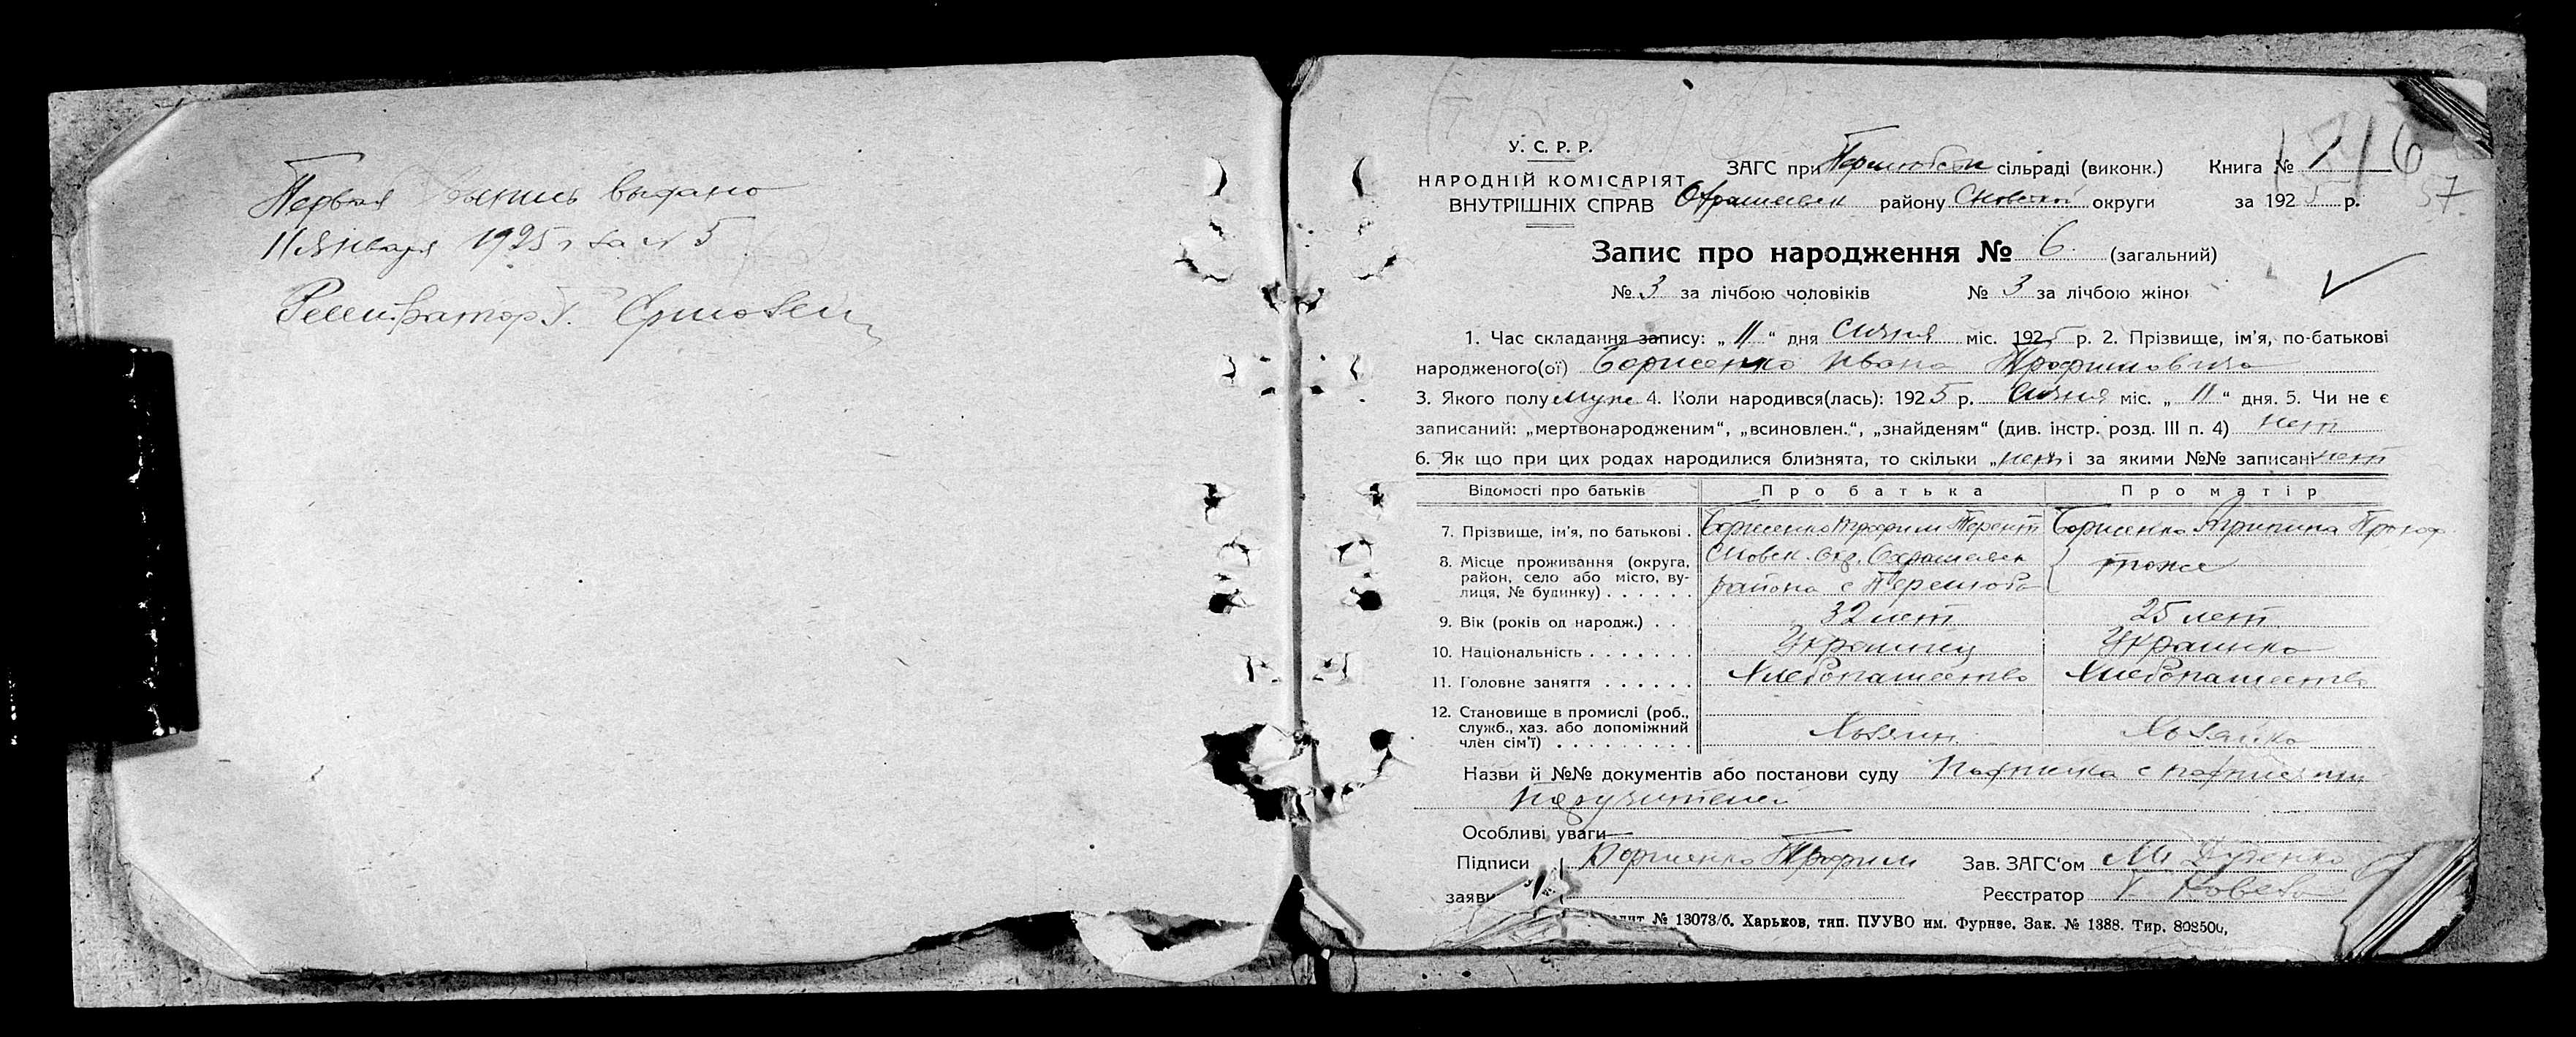 Первая выпись выдано
11 Января 1925 г за № 5
Регистратор
У. С. Р. Р.
НАРОДНІЙ КОМІСАРІЯТ
ВНУТРІШНІХ СПРАВ
ЗАГС при сільраді (виконк.) Книга № 1 6
району Сновской округи за 1925 р. 57
Запис про народження № 6 (загальний)
№ 3 за лічбою чоловіків № 3 за лічбою жінок
1. Час складання запису: „ 11 “ дня Січня міс. 1925 р. 2. Прізвище, ім'я, по-батькові
народженого(ої) Борисенко Ивана Трофимовича
3. Якого полу муж 4. Коли народився(лась): 1925 р. Січня міс. „ 11 “ дня. 5. Чи не є
записаний: „мертвонародженим“, „всиновлен.“, „знайденям“ (див. інстр. розд. III п. 4) нет
6. Як що при цих родах народилися близнята, то скільки „нет і за якими №№ записані нет
Відомості про батьків Про батька Про матір
7. Прізвище, ім'я, по батькові . Борисенко Трофим Терент Борисенко Агрипина Прокоф
8. Місце проживання (округа, район, село або місто, вулиця, № будинку) . . . . . . Сновск. окр.
района с тоже
9. Вік (років од народж.) . . 32 лет 25 лет
10. Національність . . . . . . . Украинец Украинка
11. Головне заняття . . . . . . Хлебопашество Хлебопашество
12. Становище в промислі (роб.,
служб., хаз. або допоміжний
член сім'ї) . . . . . . . . . Хозяин Хозяйка
Назви й №№ документів або постанови суду Подписка с подписями
поручителей
Особливі уваги
Підписи Борисенко Трофим Зав. ЗАГС'ом
заяви Реєстратор
№ 13073/б. Харьков, тип. ПУУВО им. Фрунзе. Зак. № 1388. Тир.